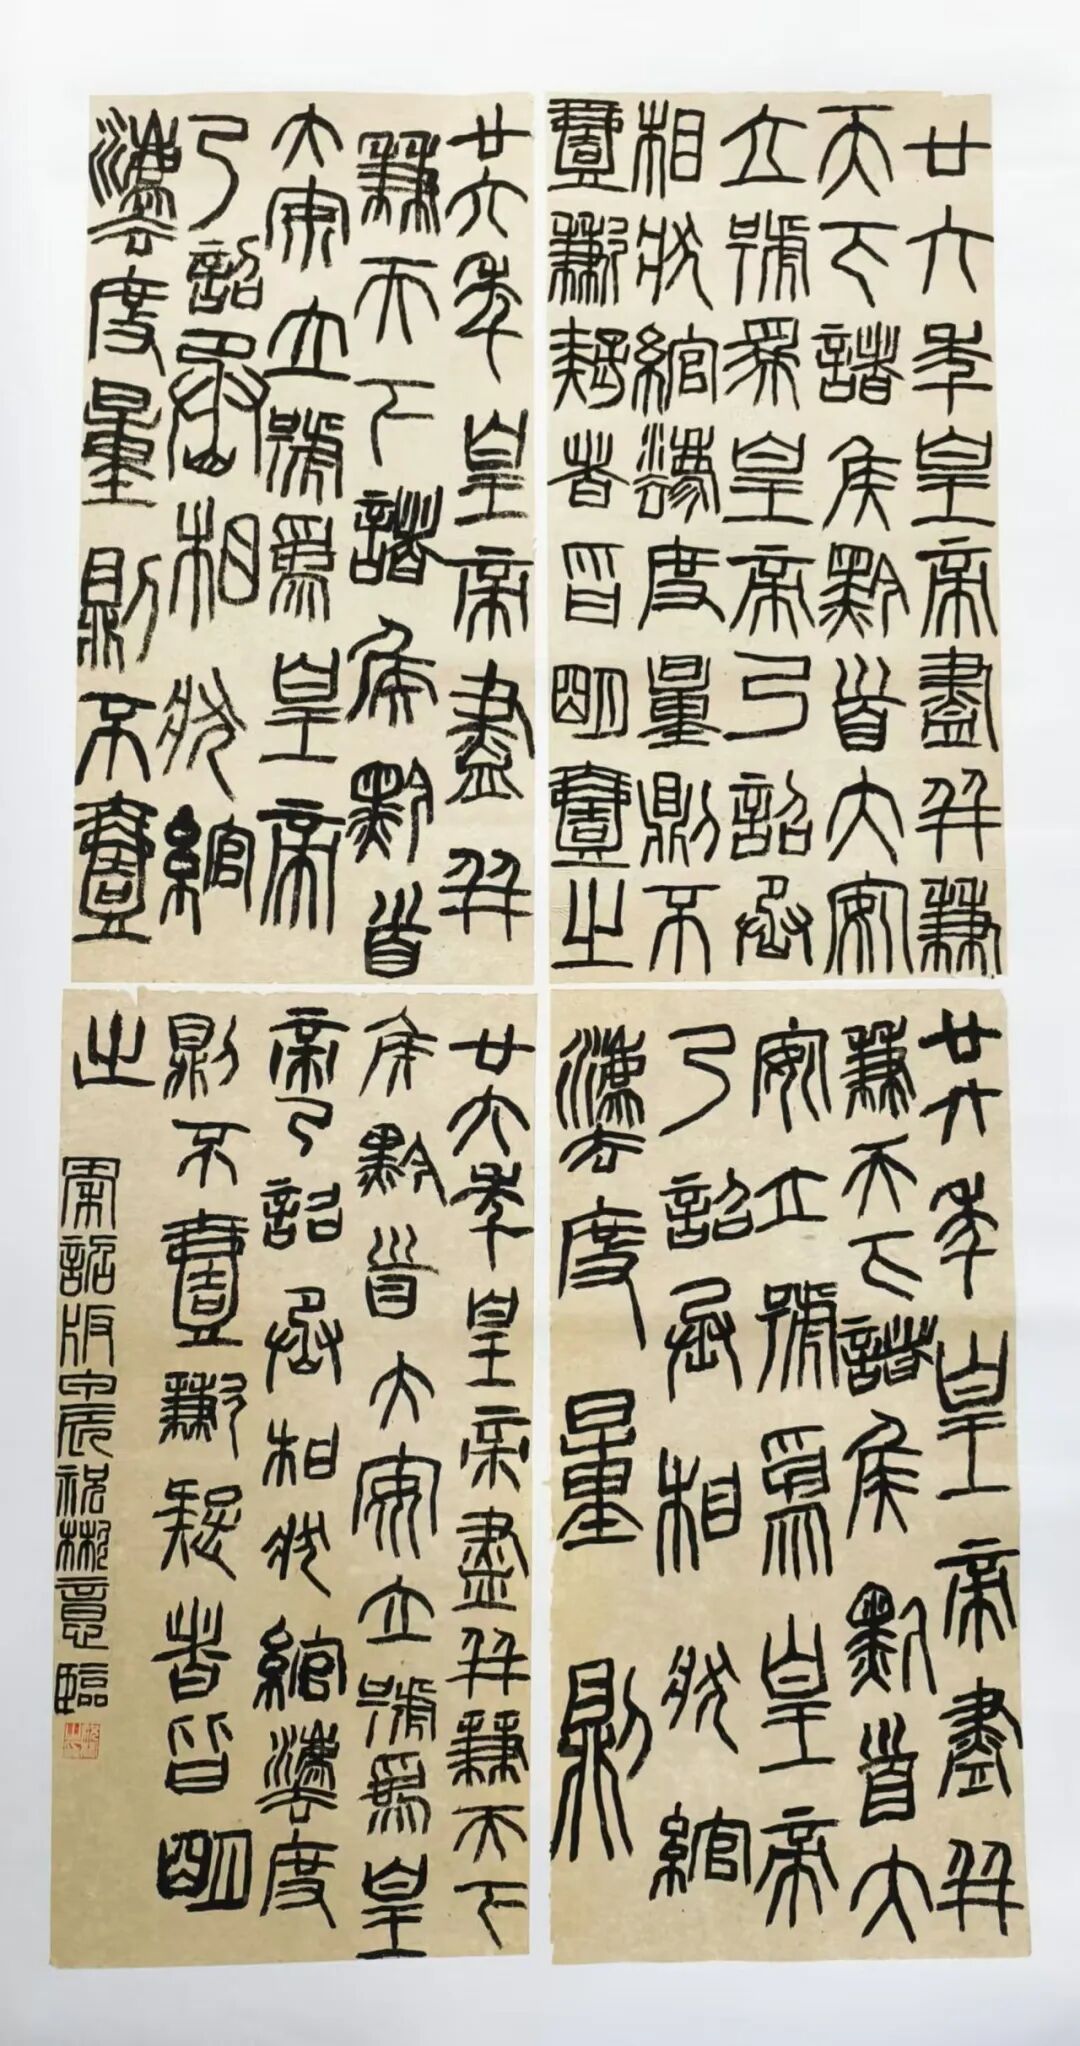 廿六年皇帝盡并兼
天下諸侯黔首大安
立號為皇帝乃詔丞
相狀綰灋度量則不
壹歉疑者皆明壹之
廿六年皇帝盡并
兼天下諸侯黔首
大安立號為皇帝
乃詔丞相狀綰
灋度量則不壹
廿六年皇帝盡并
兼天下諸侯黔首大
安立號為皇帝
乃詔丞相狀綰
灋度量則
廿六年皇帝盡并兼天下
侯黔首大安立號為皇
帝乃詔丞相狀綰灋度
則不壹歉疑者皆明
之
詔版祝意臨